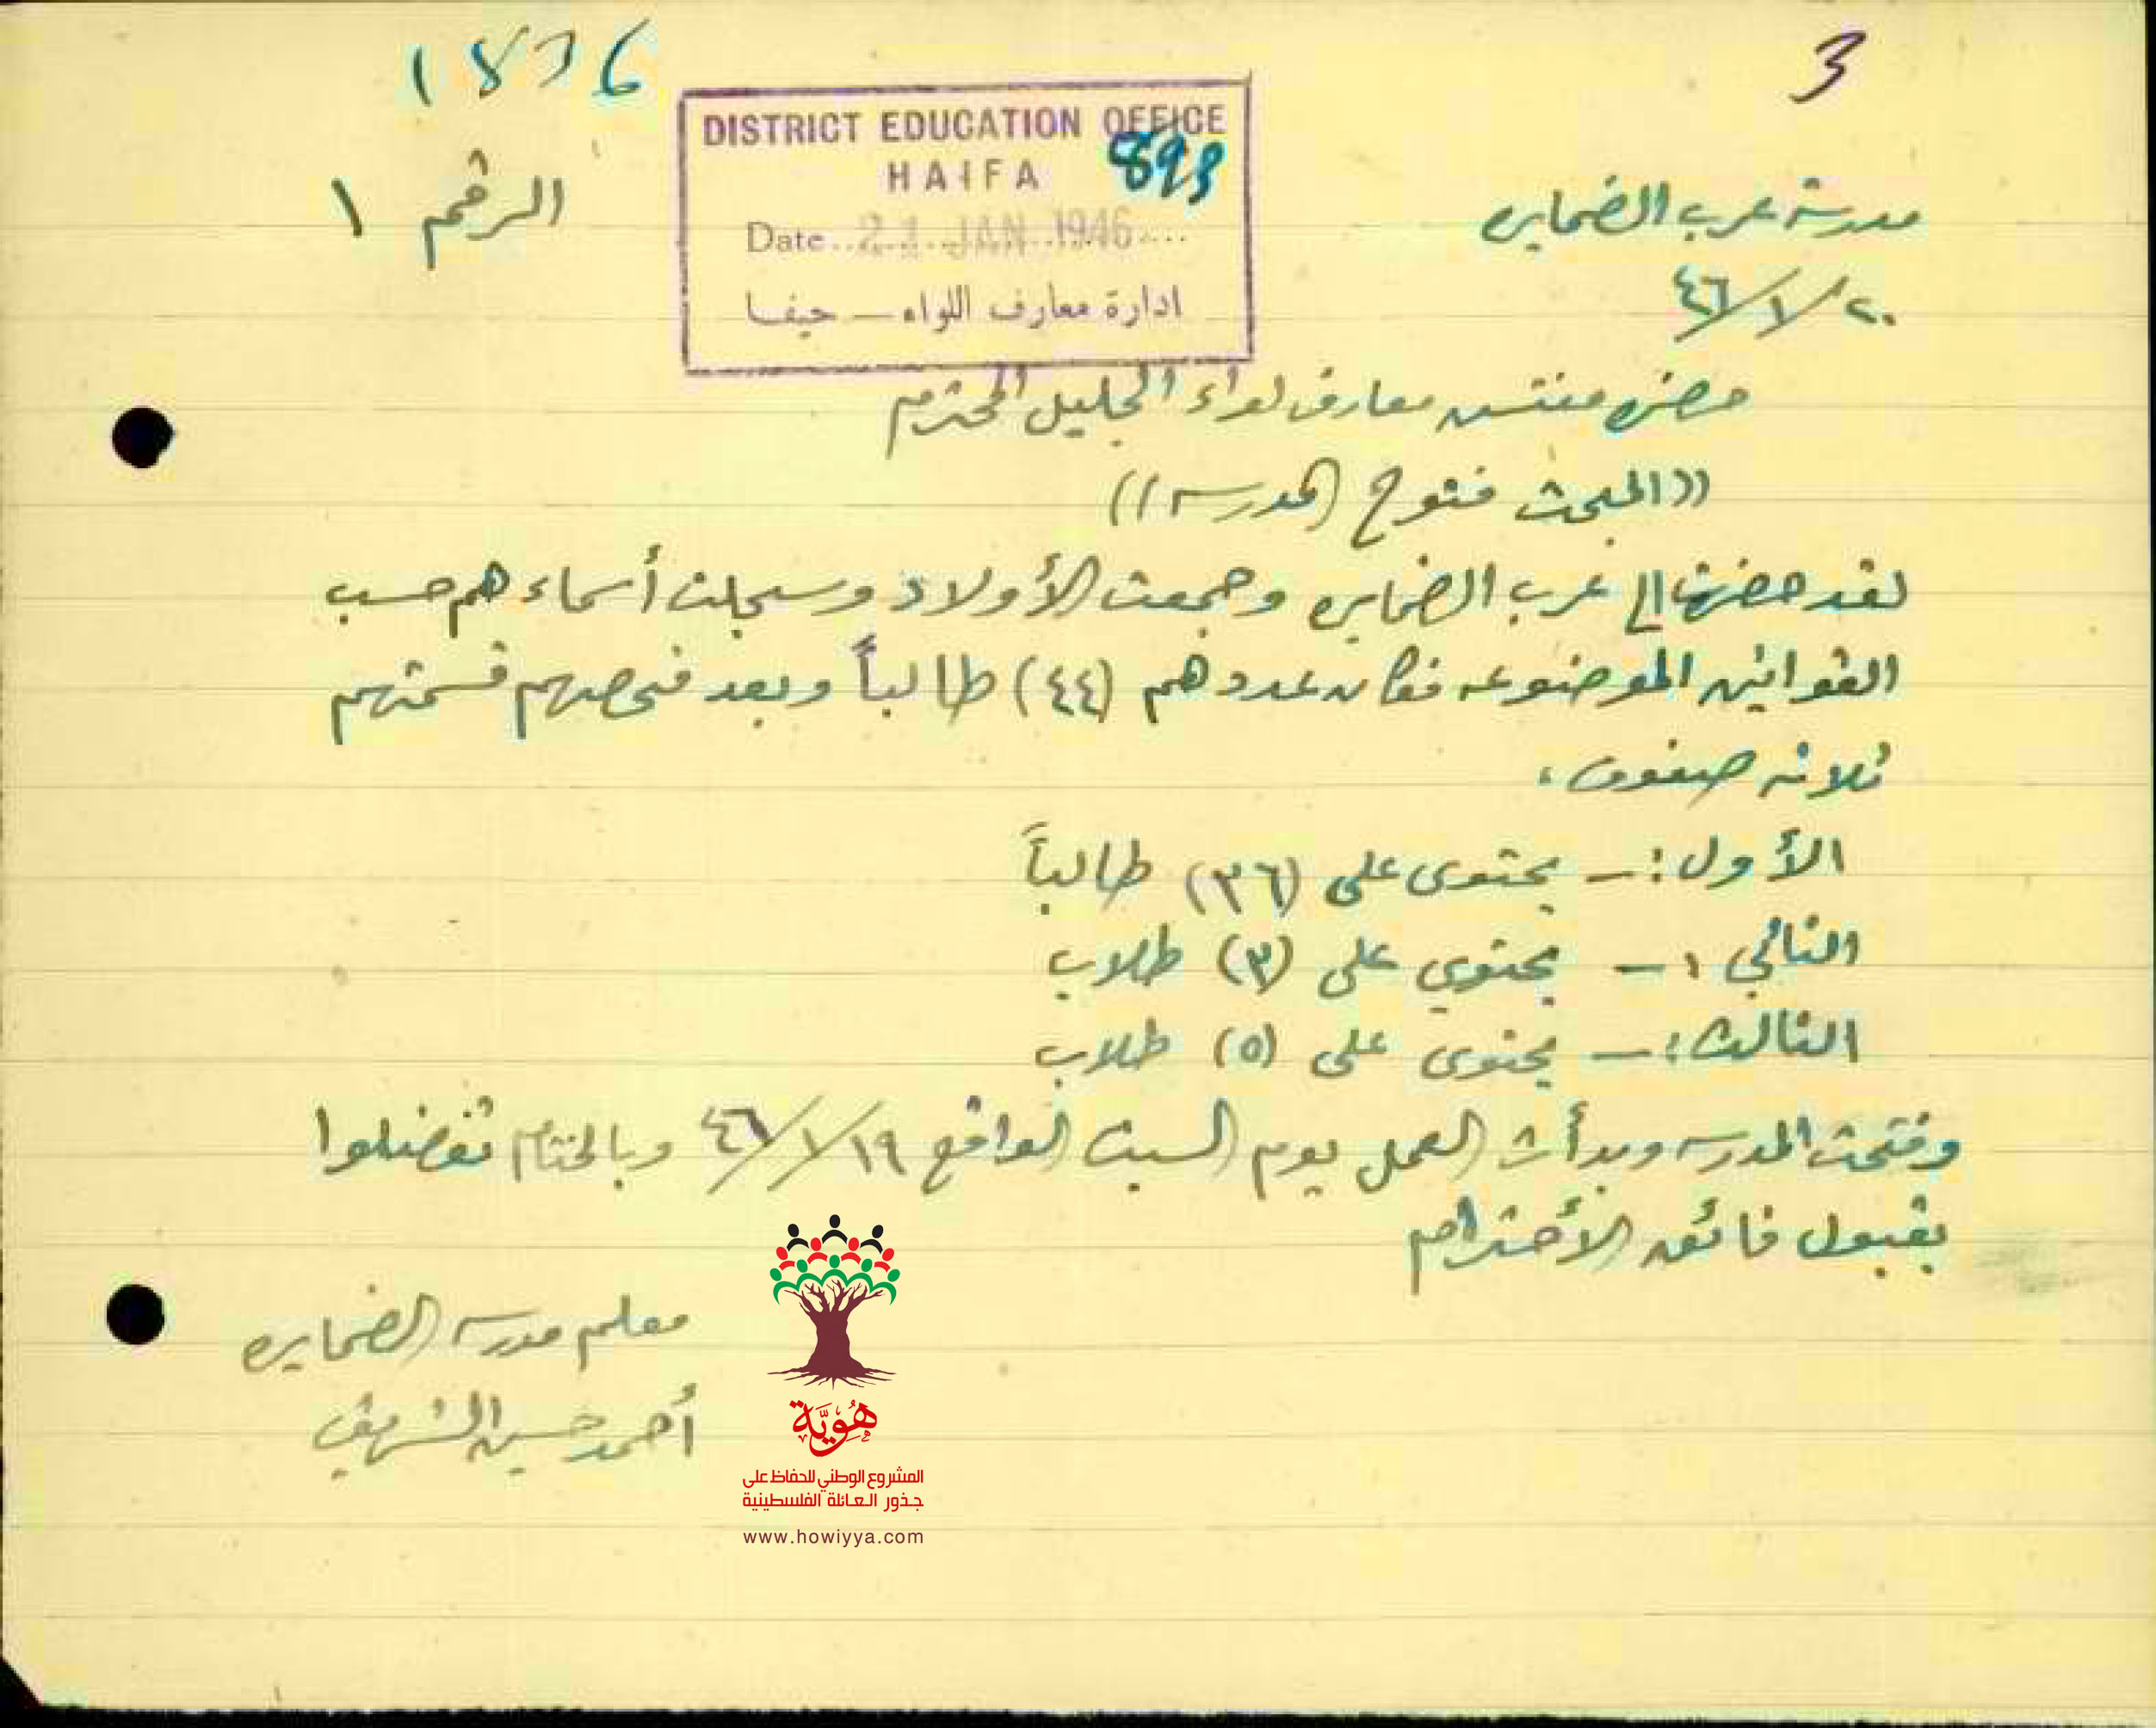 3
DISTRICT EDUCATION OFFICE
HAIFA
893
Date 21 JAN 1946
ادارة معارف اللواء — حيفا
الرقم ١
مدرسة عرب الضمايره
٢٠/١/٤٦
حضرة مفتش معارف لواء الجليل المحترم
((المبحث فتوح المدرسه))
لقد حضرت الى عرب الضمايره وجمعت الأولاد وسجلت أسماءهم حسب
القوانين الموضوعه فكان عددهم (٤٤) طالباً وبعد فحصهم قسمتهم
ثلاثه صفوف،
الأول:- يحتوى على (٣٦) طالباً
الثاني :- يحتوي على (٣) طلاب
الثالث:- يحتوى على (٥) طلاب
وفتحت المدرسه وبدأت العمل يوم السبت الواقع ١٩/١/٤٦ وبالختام تفضلوا
بقبول فائق الأحترام
معلم مدرسة الضمايره
أحمد حسين
هُوِيَّة
المشروع الوطني للحفاظ على
جذور العائلة الفلسطينية
www.howiyya.com